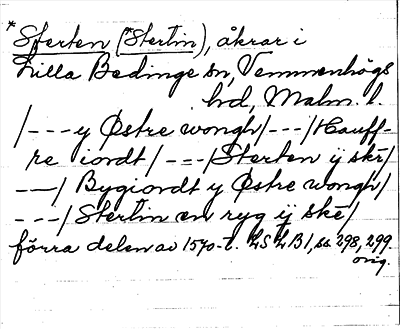 *Sterten (*Stertin), åkrar i
Lilla Beddinge sn, Vemmenhögs
hd, Malm. l.
/---y Østre wongh/---/Hauff-
re iordt/---/Sterten ÿ skè/
---/Bygiordt y Østre wongh/
---/Stertin en ryg ÿ skè/
förra delen av 1570-t. LSLB1, ss. 298, 299.
orig.